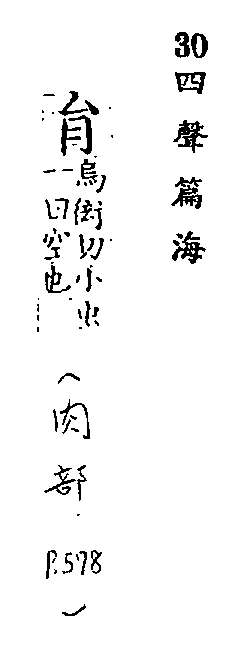 30四聲篇海
䏍烏衒切小虫
一曰空也
(肉部.P.578)